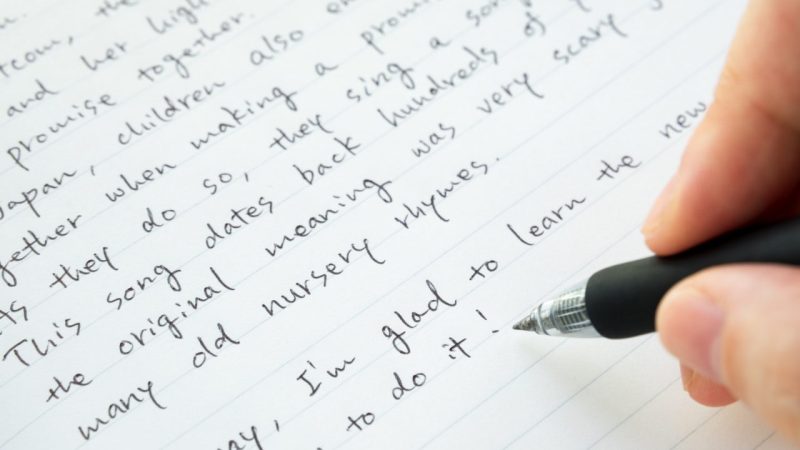 the
and her high
promise together.
Japan, children also
gether when making a promi
As they do so, they sing a son
This song dates back hundreds of
the original meaning was very scary
many old nursery rhymes.
I'm glad to learn the new
to do it!